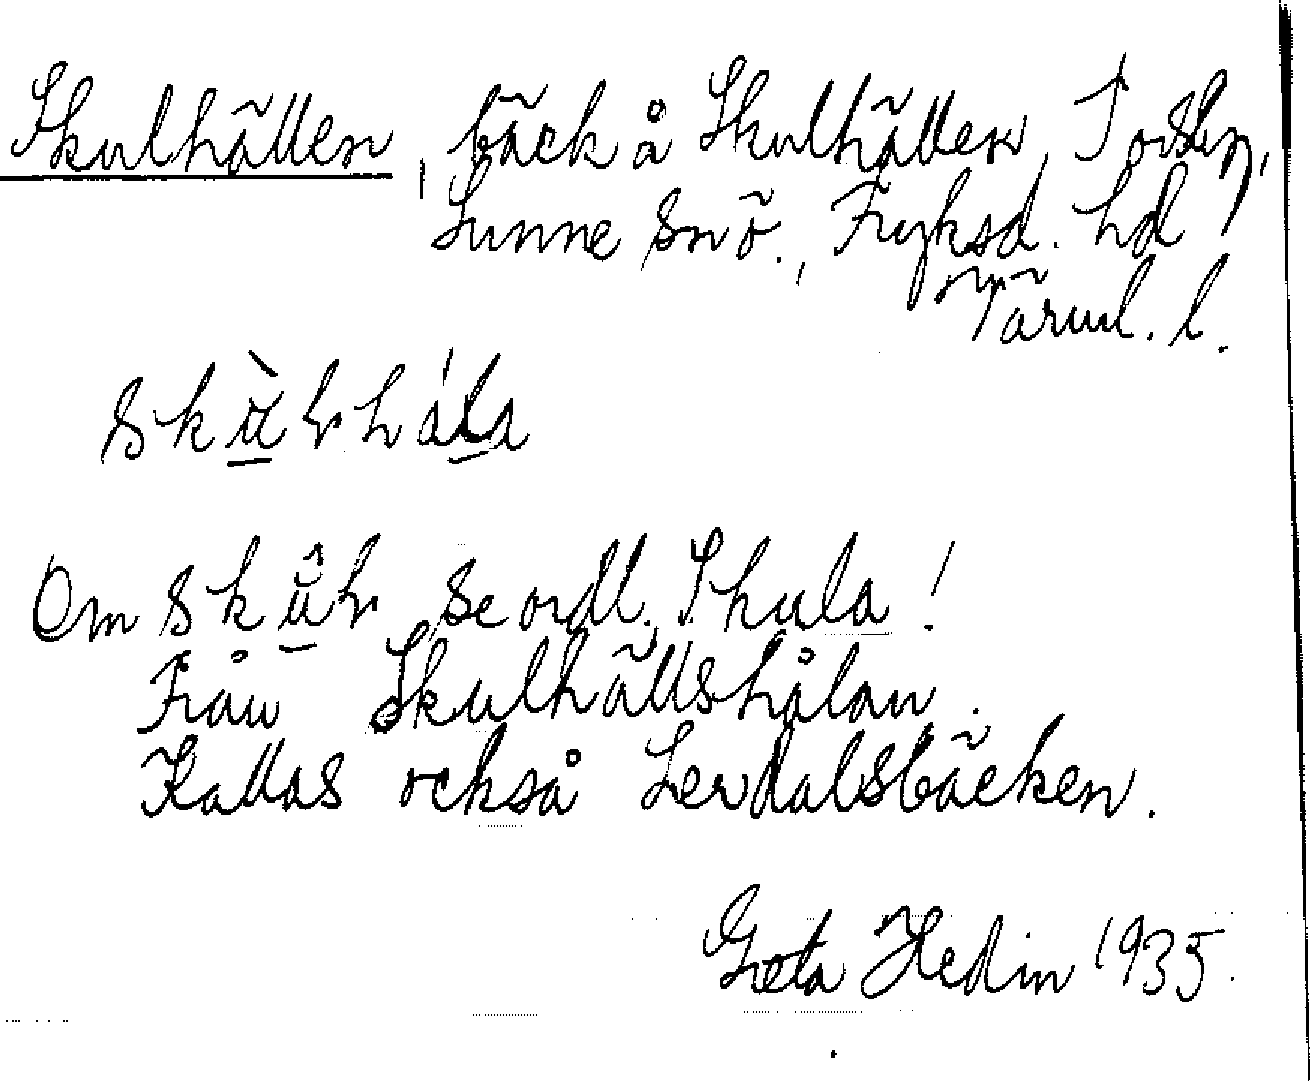 Skulhällen, bäck å Skulhällen, Torsby,
Sunne snö., Fryksd. hd
Värml. l.
Om se ordl. Skula!
Från Skulhällshålan.
Kallas också Lerdalsbäcken.
Greta Hedin 1935.